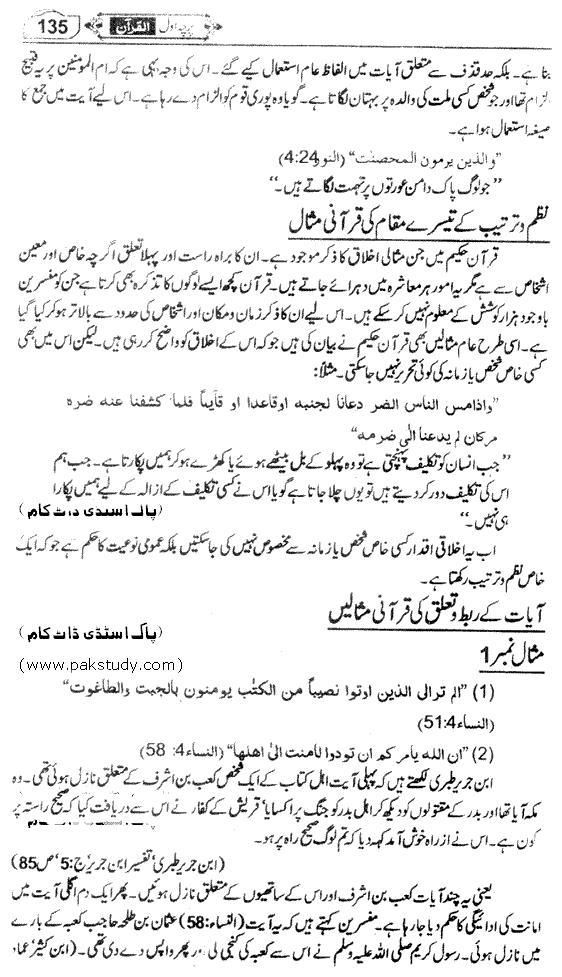 135 القرآن پرچہ اول
بنتا ہے۔ بلکہ حد قذف سے متعلق آیات میں الفاظ عام استعمال کیے گئے۔ اس کی وجہ یہی ہے کہ ام المومنین پر یہ قبیح
الزام تھا اور جو شخص کسی ملت کی والدہ پر بہتان لگاتا ہے۔ گویا وہ پوری قوم کو الزام دے رہا ہے۔ اس لیے آیت میں جمع کا
صیغہ استعمال ہوا ہے۔
”والذین یرمون المحصنت“ (النور4:24)
”جو لوگ پاک دامن عورتوں پر تہمت لگاتے ہیں۔“
نظم و ترتیب کے تیسرے مقام کی قرآنی مثال
قرآن حکیم میں جن مثالی اخلاق کا ذکر موجود ہے۔ ان کا براہ راست اور پہلا تعلق اگرچہ خاص اور معین
اشخاص سے ہے مگر یہ امور ہر معاشرہ میں دہرائے جاتے ہیں۔ قرآن کچھ ایسے لوگوں کا تذکرہ بھی کرتا ہے جن کو مفسرین
باوجود ہزار کوشش کے معلوم نہیں کر سکے ہیں۔ اس لیے ان کا ذکر زمان و مکان اور اشخاص کی حدود سے بالاتر ہو کر کیا گیا
ہے۔ اسی طرح عام مثالیں بھی قرآن حکیم نے بیان کی ہیں جو کہ اس کے اخلاق کو واضح کر رہی ہیں۔ لیکن اس میں بھی
کسی خاص شخص یا زمانہ کی کوئی تحریر نہیں جا سکتی۔ مثلاً:
”واذامس الناس الضر دعانا لجنبه اوقاعدا او قآیماً فلما کشفنا عنه ضره
مرکان لم یدعنا الی ضرمه“
”جب انسان کو تکلیف پہنچتی ہے تو وہ پہلو کے بل بیٹھے ہوئے یا کھڑے ہو کر ہمیں پکارتا ہے۔ جب ہم
اس کی تکلیف دور کر دیتے ہیں تو یوں چلا جاتا ہے گویا اس نے کسی تکلیف کے ازالہ کے لیے ہمیں پکارا
ہی نہیں۔“ (پاک اسٹڈی ڈاٹ کام)
اب یہ اخلاقی اقدار کسی خاص شخص یا زمانہ سے مخصوص نہیں کی جا سکتیں بلکہ عمومی نوعیت کا حکم ہے جو کہ ایک
خاص نظم و ترتیب رکھتا ہے۔
آیات کے ربط و تعلق کی قرآنی مثالیں
(پاک اسٹڈی ڈاٹ کام)
مثال نمبر 1
(www.pakstudy.com)
(1) ”الم ترالی الذین اوتوا نصیباً من الکتٰب یومنون بالجبت والطاغوت“
(النساء51:4)
(2) ”ان الله یامرکم ان تودوا لامنت الی اهلها“ (النساء4: 58)
ابن جریر طبری لکھتے ہیں کہ پہلی آیت اہل کتاب کے ایک شخص کعب بن اشرف کے متعلق نازل ہوئی تھی۔ وہ
مکہ آیا تھا اور بدر کے مقتولوں کو دیکھ کر اہل بدر کو جنگ پر اکسایا‘ قریش کے کفار نے اس سے دریافت کیا کہ صحیح راستہ پر
کون ہے۔ اس نے از راہ خوش آمد کہہ دیا کہ تم لوگ صحیح راہ پر ہو۔
(ابن جریر طبری‘ تفسیر ابن جریر‘ ج:5‘ ص85)
یعنی یہ چند آیات کعب بن اشرف اور اس کے ساتھیوں کے متعلق نازل ہوئیں۔ پھر ایک دم اگلی آیت میں
امانت کی ادائیگی کا حکم دیا جا رہا ہے۔ مفسرین کہتے ہیں کہ یہ آیت (النساء:58) عثمان بن طلحہ حاجب کعبہ کے بارے
میں نازل ہوئی۔ رسول کریم صلی اللہ علیہ وسلم نے اس سے کعبہ کی کنجی لی اور پھر واپس دے دی تھی۔ (ابن کثیر‘ عماد